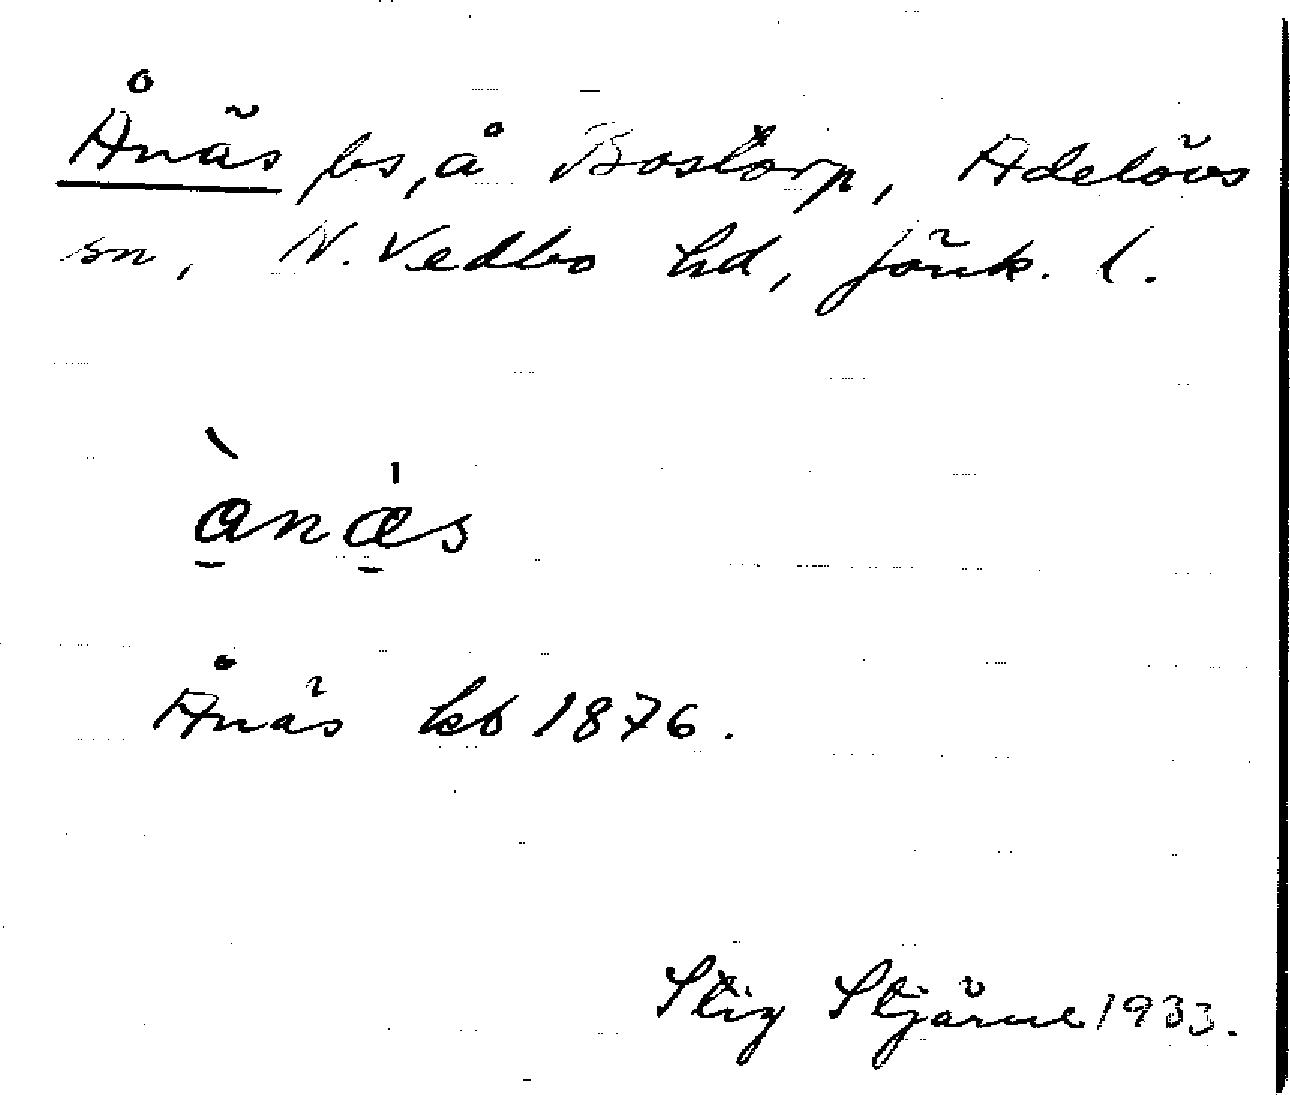 Ånäs fs, å Bostorp, Adelövs
sn, N. Vedbo hd, Jönk. l.
ànæ̍s
Ånäs kb 1876.
Stig Stjärne 1933.